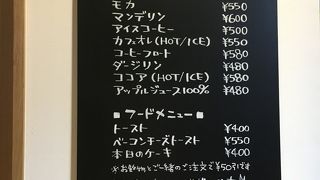 モカ ¥550
マンデリン ¥600
アイスコーヒー ¥500
カフェオレ(HOT/ICE) ¥550
コーヒーフロート ¥580
ダージリン ¥480
ココア(HOT/ICE) ¥580
アップルジュース100% ¥480
■フードメニュー■
トースト ¥400
ベーコンチーズトースト ¥550
本日のケーキ ¥400
※お飲物とご一緒のご注文で¥50引き